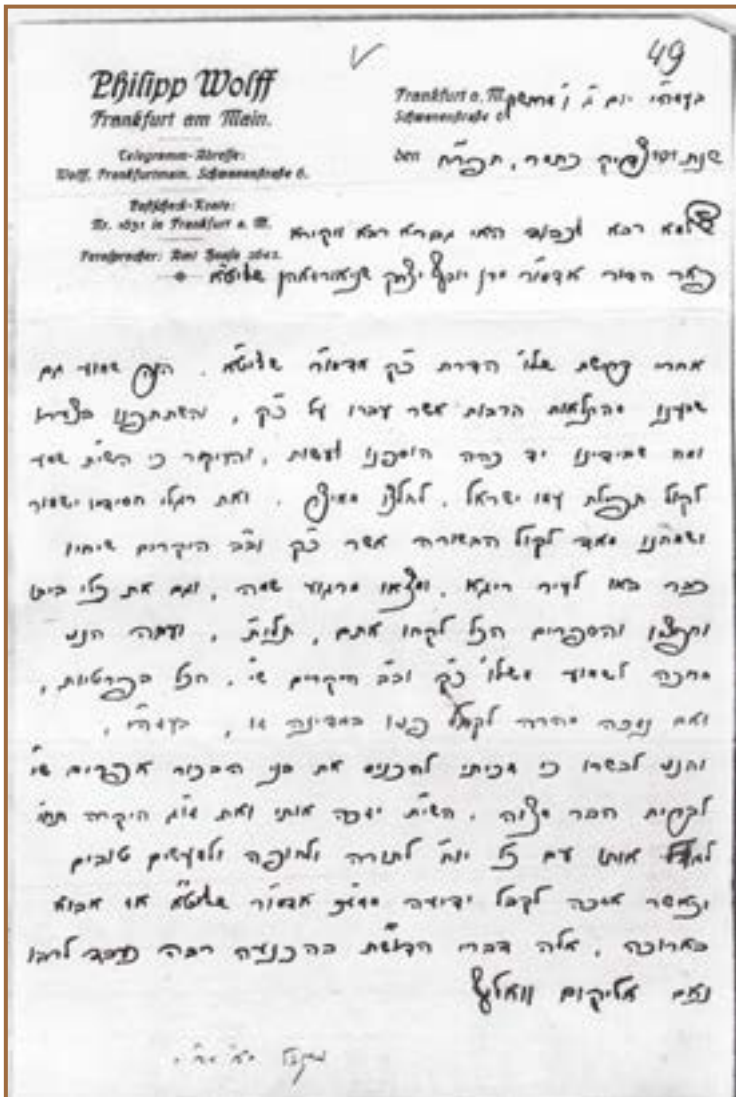 49
Philipp Wolff
Frankfurt am Main.
Telegramm-Adresse:
Wolff, Frankfurtmain, Schwanenstraße 6.
Postscheck-Konto:
Nr. 1631 in Frankfurt a. M.
Fernsprecher: Amt Hansa
Frankfurt a. M.
Schwanenstraße 6
den
בעזהי״ת יום ג׳
שנת
שלמא רבא לכבוד האי גברא רבא ויקירא
פאר הדור אדמו״ר מרן יוסף יצחק שניאורסאהן שליט״א
אחרי דרישת שלו׳ הדרת כ״ק אדמו״ר שליט״א. הנה שמוע גם
שמענו מהתלאות הרבות אשר עברו על כ״ק, והשתתפנו בצערו
ומה שבידינו יד כהה הוספנו לעשות, והעיקר כי השי״ת שמע
לקול תפילת עמו ישראל, לחלצו ממיצר, ואת רגלי חסידיו ישמור
ושמחנו מאד לקול הבשורה אשר כ״ק וב״ב היקרים שיחיו
כבר באו לעיר ריגא, ומצאו מרגוע שמה, וגם את כלי ביתו
וחפציו והספרים הכל לקחו אתם, תלי״ת, ועתה הננו
מחכה לשמוע משלו׳ כ״ק וב״ב היקרים שי׳, הכל בפרטיות,
ואם נזכה מהרה לקבל פניו במדינה זו, בעזה״י,
והננו לבשרו כי זכיתי להכניס את בני הבכור אפרים שי׳
לברית הבר מצוה, השי״ת יזכה אותי ואת זוג׳ היקרה תחי׳
לגדל אותו עם כל יו״ח לתורה ולחופה ולמעשים טובים
וכאשר אזכה לקבל ידיעה מאת אדמו״ר שליט״א אז אבוא
בארוכה, אלה דברי הדו״שת בהכנעה רבה כעבד לרבו
נאם אליקום וואלף